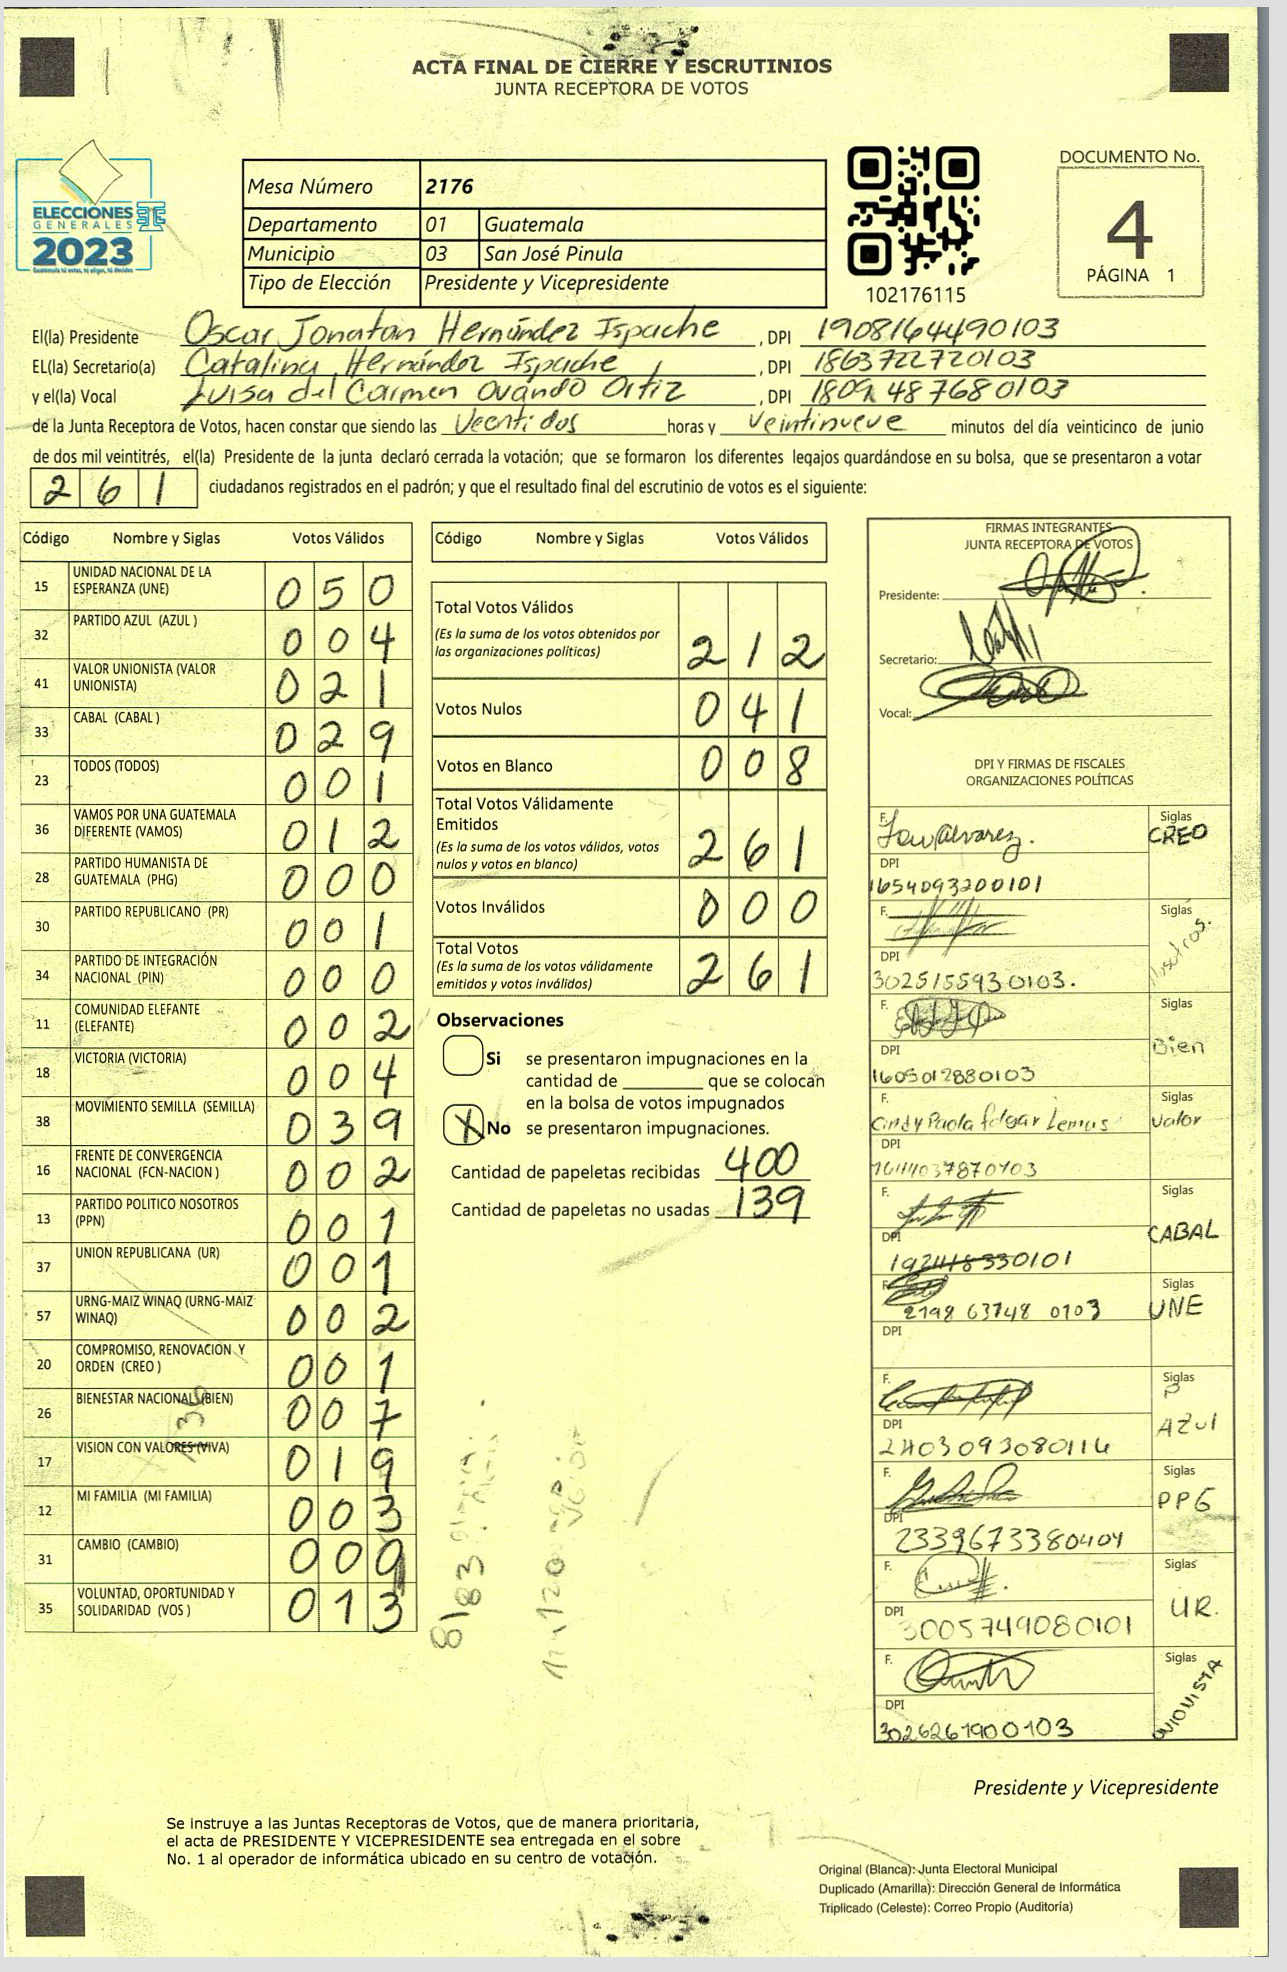 ACTA FINAL DE CIERRE Y ESCRUTINIOS
JUNTA RECEPTORA DE VOTOS
ELECCIONES
GENERALES
2023
Guatemala tú votas, tú eliges, tú decides
Mesa Número 2176
Departamento 01 Guatemala
Municipio 03 San José Pinula
Tipo de Elección Presidente y Vicepresidente
102176115
DOCUMENTO No.
4
PÁGINA 1
El(la) Presidente Oscar Jonatan Hernández Ispache , DPI 1908164490103
EL(la) Secretario(a) Catalina Hernández Ispache , DPI 1863722720103
y el(la) Vocal Luisa del Carmen Ovando Ortiz , DPI 1809487680103
de la Junta Receptora de Votos, hacen constar que siendo las Veenti dos horas y veintinueve minutos del día veinticinco de junio
de dos mil veintitrés, el(la) Presidente de la junta declaró cerrada la votación; que se formaron los diferentes legajos guardándose en su bolsa, que se presentaron a votar
261 ciudadanos registrados en el padrón; y que el resultado final del escrutinio de votos es el siguiente:
Código Nombre y Siglas Votos Válidos
15 UNIDAD NACIONAL DE LA ESPERANZA (UNE) 050
32 PARTIDO AZUL (AZUL ) 004
41 VALOR UNIONISTA (VALOR UNIONISTA) 021
33 CABAL (CABAL ) 029
23 TODOS (TODOS) 001
36 VAMOS POR UNA GUATEMALA DIFERENTE (VAMOS) 012
28 PARTIDO HUMANISTA DE GUATEMALA (PHG) 000
30 PARTIDO REPUBLICANO (PR) 001
34 PARTIDO DE INTEGRACIÓN NACIONAL (PIN) 000
11 COMUNIDAD ELEFANTE (ELEFANTE) 002
18 VICTORIA (VICTORIA) 004
38 MOVIMIENTO SEMILLA (SEMILLA) 039
16 FRENTE DE CONVERGENCIA NACIONAL (FCN-NACION ) 002
13 PARTIDO POLITICO NOSOTROS (PPN) 001
37 UNION REPUBLICANA (UR) 001
57 URNG-MAIZ WINAQ (URNG-MAIZ WINAQ) 002
20 COMPROMISO, RENOVACION Y ORDEN (CREO ) 001
26 BIENESTAR NACIONAL (BIEN) 007
17 VISION CON VALORES (VIVA) 019
12 MI FAMILIA (MI FAMILIA) 003
31 CAMBIO (CAMBIO) 000
35 VOLUNTAD, OPORTUNIDAD Y SOLIDARIDAD (VOS ) 013
Código Nombre y Siglas Votos Válidos
Total Votos Válidos 212
(Es la suma de los votos obtenidos por
las organizaciones políticas)
Votos Nulos 041
Votos en Blanco 008
Total Votos Válidamente
Emitidos 261
(Es la suma de los votos válidos, votos
nulos y votos en blanco)
Votos Inválidos 000
Total Votos 261
(Es la suma de los votos válidamente
emitidos y votos inválidos)
Observaciones
Si se presentaron impugnaciones en la
cantidad de ________ que se colocan
en la bolsa de votos impugnados
X No se presentaron impugnaciones.
Cantidad de papeletas recibidas 400
Cantidad de papeletas no usadas 139
FIRMAS INTEGRANTES
JUNTA RECEPTORA DE VOTOS
Presidente:
Secretario:
Vocal:
DPI Y FIRMAS DE FISCALES
ORGANIZACIONES POLÍTICAS
F. Siglas
CREO
DPI
1654093200101
F. Siglas
DPI
3025155930103.
F. Siglas
Bien
DPI
1605012880103
F. Cindy Paola Edgar Lemus Valor
DPI
1644037870103
F. Siglas
CABAL
DPI
192418330101
F. Siglas
UNE
2198 63748 0103
DPI
F. Siglas
P
AZUl
DPI
2403093080116
F. Siglas
PPG
DPI
2339673380404
F. Siglas
UR.
DPI
3005749080101
F. Siglas
UNIONISTA
DPI
3026261900103
Presidente y Vicepresidente
Se instruye a las Juntas Receptoras de Votos, que de manera prioritaria,
el acta de PRESIDENTE Y VICEPRESIDENTE sea entregada en el sobre
No. 1 al operador de informática ubicado en su centro de votación.
Original (Blanca): Junta Electoral Municipal
Duplicado (Amarilla): Dirección General de Informática
Triplicado (Celeste): Correo Propio (Auditoría)